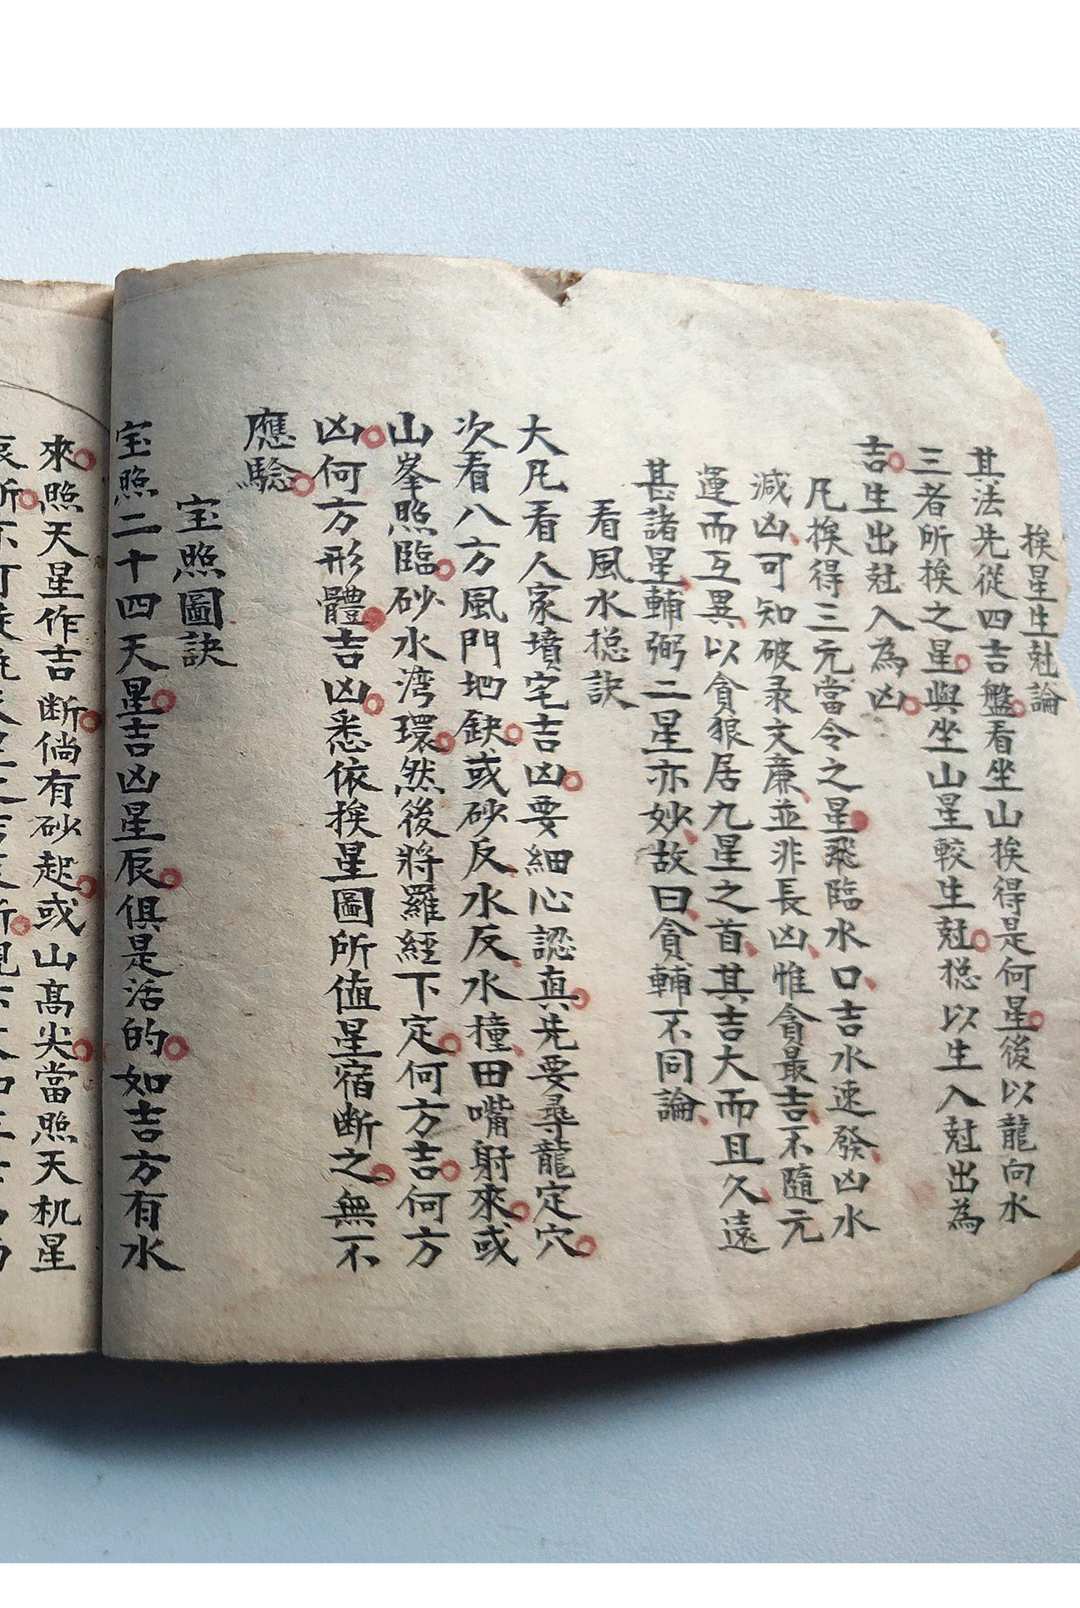 挨星生尅論
其法先從四吉盤看坐山挨得是何星後以龍向水
三者所挨之星與坐山星較生尅捴以生入尅出為
吉生出尅入為凶
凡挨得三元當令之星飛臨水口吉水速發凶水
減凶可知破彔文廉並非長凶惟貪最吉不隨元
運而互異以貪狼居九星之首其吉大而且久遠
甚諸星輔弼二星亦妙故曰貪輔不同論
看風水捴訣
大凡看人家墳宅吉凶要細心認真先要尋龍定穴
次看八方風門地缺或砂反水反水撞田嘴射來或
山峯照臨砂水湾環然後將羅經下定何方吉何方
凶何方形體吉凶悉依挨星圖所值星宿断之無不
應驗
宝照圖訣
宝照二十四天星吉凶星辰俱是活的如吉方有水
來照天星作吉断倘有砂起或山高尖當照天机星